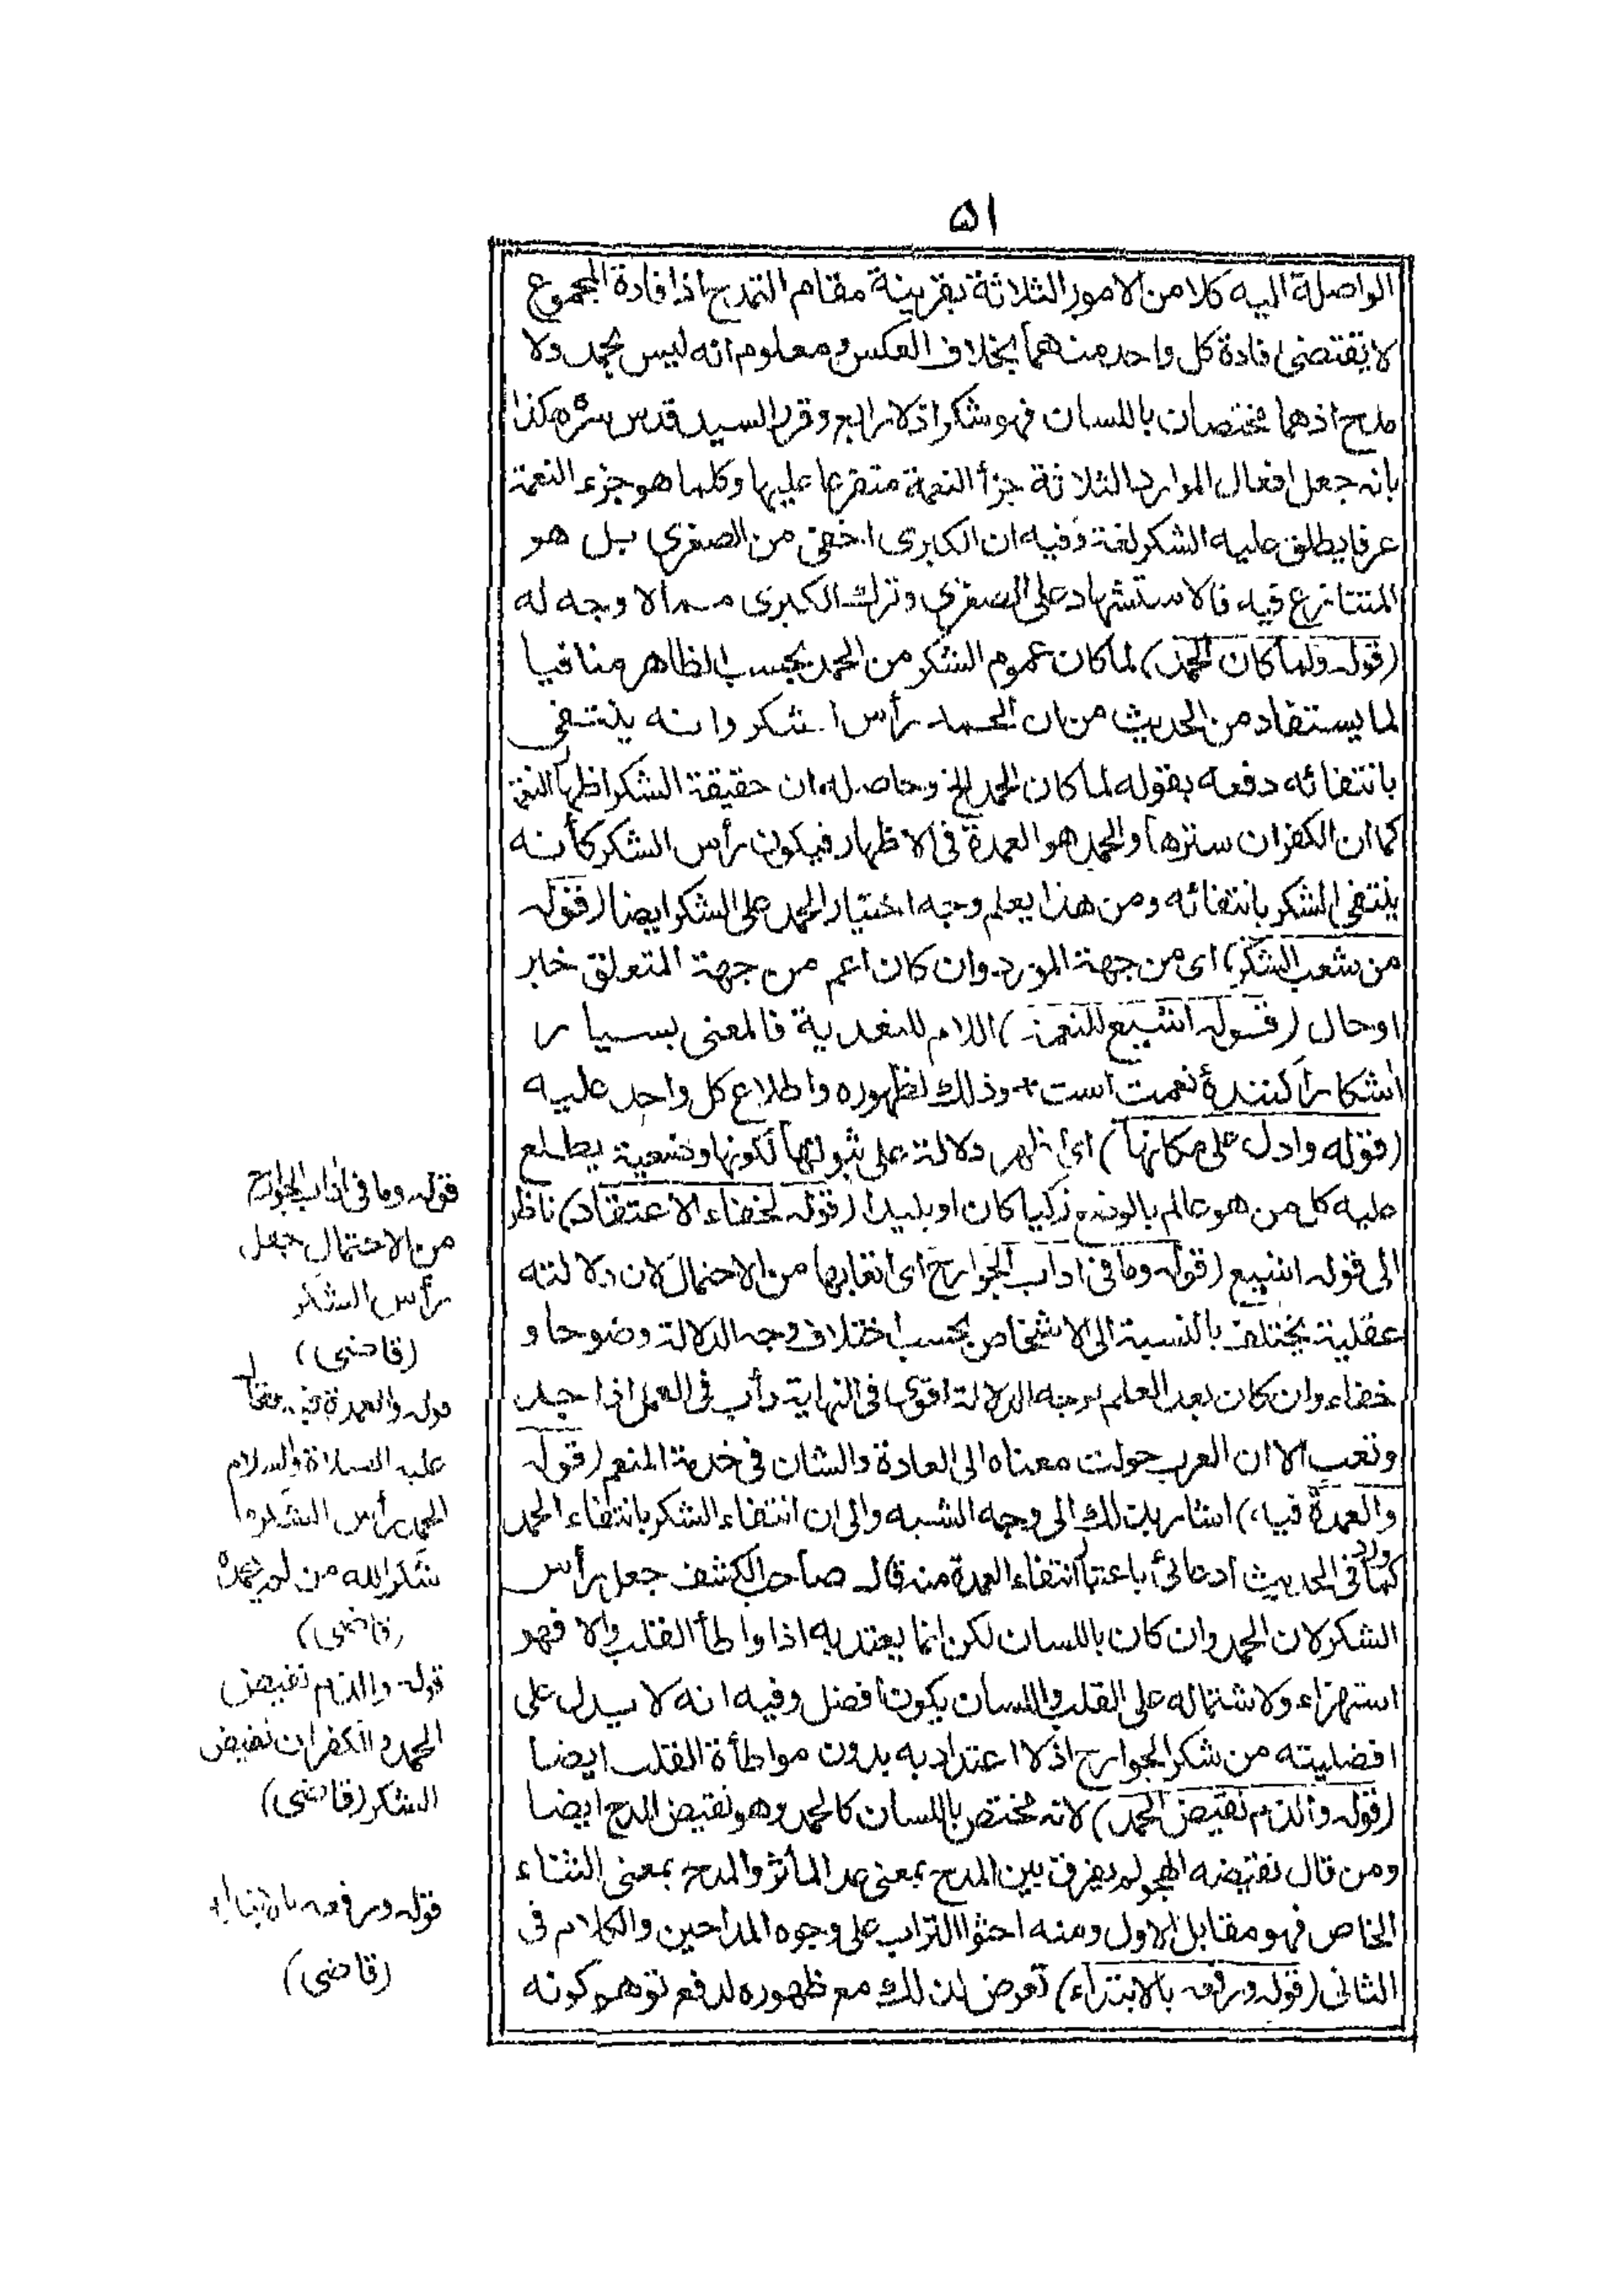 ٥١
الواصلة اليه كلا من الامور الثلاثة بقرينة مقام التمدح اذ افادة المجموع
لا يقتضى افادة كل واحد منهما بخلاف العكس ومعلوم انه ليس بحمد ولا
مدح اذهما مختصان باللسان فهو شكر اذ لا رابع وقرر السيد قدس سره هكذا
بانه جعل افعال الموارد الثلاثة جزأ النعمة متفرعا عليها وكلما هو جزء النعمة
عرفا يطلق عليه الشكر لغة وفيه ان الكبرى اخفى من الصغرى بل هو
المتنازع فيه فالاستشهاد على الصغرى وترك الكبرى مما لا وجه له
(قوله ولما كان الحمد) لما كان عموم الشكر من الحمد بحسب الظاهر منافيا
لما يستفاد من الحديث من ان الحمد رأس الشكر وانه ينتفى
بانتفائه دفعه بقوله لما كان الحمد الخ وحاصله ان حقيقة الشكر اظهار النعمة
كما ان الكفران سترها والحمد هو العمدة فى الاظهار فيكون رأس الشكر كأنه
ينتفى الشكر بانتفائه ومن هذا يعلم وجه اختيار الحمد على الشكر ايضا (قوله
من شعب الشكر) اى من جهة المورد وان كان اعم من جهة المتعلق خبر
او حال (قوله اشيع للنعمة) اللام للتعدية فالمعنى بسيار
آشكارا كنندهٔ نعمت است + وذلك لظهوره واطلاع كل واحد عليه
(قوله وادل على مكانها) اى اظهر دلالة على ثبوتها لكونها وضعية يطلع
عليه كل من هو عالم بالوضع زكيا كان او بليدا (قوله لخفاء الاعتقاد) ناظر
الى قوله اشيع (قوله وما فى اداب الجوارح اى اتعابها من الاحتمال لان دلالته
عقلية يختلف بالنسبة الى الاشخاص بحسب اختلاف وجه الدلالة وضوحا و
خفاء وان كان بعد العلم بوجه الدلالة اقوى فى النهاية دأب فى العمل اذا جد
وتعب الا ان العرب حولت معناه الى العادة والشان فى خدمة المنعم (قوله
والعمدة فيه) اشار بذلك الى وجه الشبه والى ان انتفاء الشكر بانتفاء الحمد
كما ورد فى الحديث ادعائى باعتبار انتفاء العمدة منه قال صاحب الكشف جعل رأس
الشكر لان الحمد وان كان باللسان لكن انما يعتد به اذا واطأ القلب والا فهو
استهزاء ولاشتماله على القلب واللسان يكون افضل وفيه انه لا يدل على
افضليته من شكر الجوارح اذ لا اعتداد به بدون مواطأة القلب ايضا
(قوله والذم نقيض الحمد) لانه مختص باللسان كالحمد وهو نقيض المدح ايضا
ومن قال نقيضه الهجو لم يفرق بين المدح بمعنى عد المآثر والمدح بمعنى الثناء
الخاص فهو مقابل الاول ومنه احثوا التراب على وجوه المداحين والكلام فى
الثانى (قوله ورفعه بالابتداء) تعرض لذلك مع ظهوره لدفع توهم كونه
قوله وما فى اداب الجوارح
من الاحتمال جعل
رأس الشكر
(قاضى)
قوله والعمدة فيه فقال
عليه الصلاة والسلام
الحمد رأس الشكر ما
شكر الله من لم يحمده
(قاضى)
قوله والذم نقيض
الحمد والكفران نقيض
الشكر (قاضى)
قوله ورفعه بالابتداء
(قاضى)